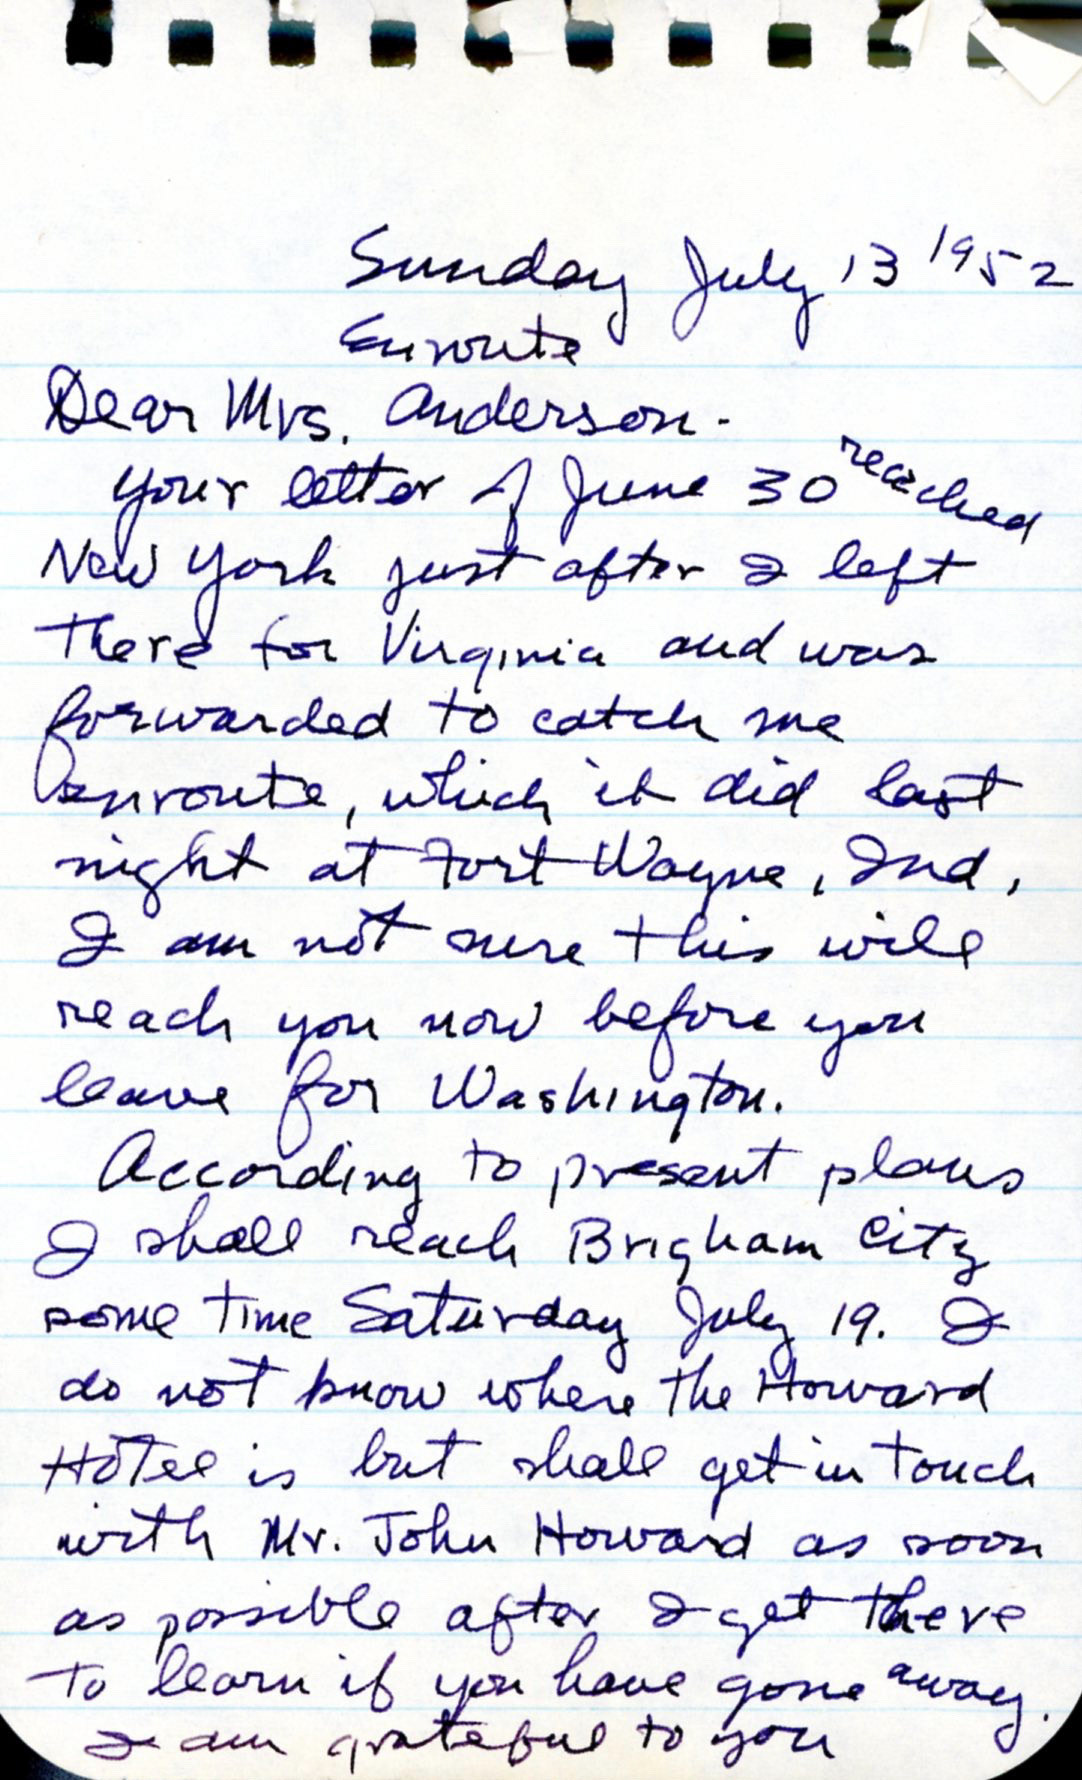 Sunday July 13 1952
Enroute
Dear Mrs. Anderson.
Your letter of June 30 reached
New York just after I left
there for Virginia and was
forwarded to catch me
enroute, which it did last
night at Fort Wayne, Ind.
I am not sure this will
reach you now before you
leave for Washington.
According to present plans
I shall reach Brigham City
some time Saturday July 19. I
do not know where the Howard
Hotel is but shall get in touch
with Mr. John Howard as soon
as possible after I get there
to learn if you have gone away.
I am grateful to you